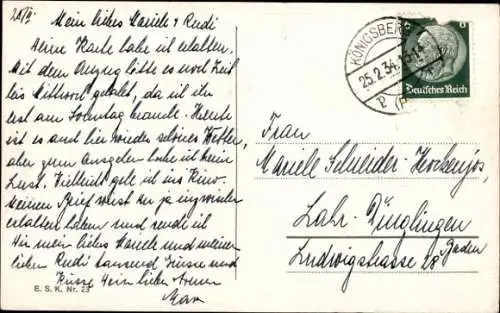 25/II
Mein liebes Mariele & Rudi
Deine Karte habe ich erhalten.
Mit dem Anzug hätte es noch Zeit
bis Mittwoch gehabt, da ich ihn
erst am Sonntag brauche. Heute
ist es auch hier wieder schönes Wetter,
aber zum Ausgehen habe ich kein
Lust. Vielleicht geh ich ins Kino.
Meinen Brief wirst Du ja inzwischen
erhalten haben und sende ich
Dir mein liebes Mariele und meinem
lieben Rudi tausend Grüsse und
Küsse Dein lieber
Max
E. S. K. Nr. 23
KÖNIGSBERG
25.2.34
(P
Deutsches Reich
6
Frau
Mariele Schneider-Hochenjos,
Lahr-Dinglingen
Baden
Ludwigstrasse 28